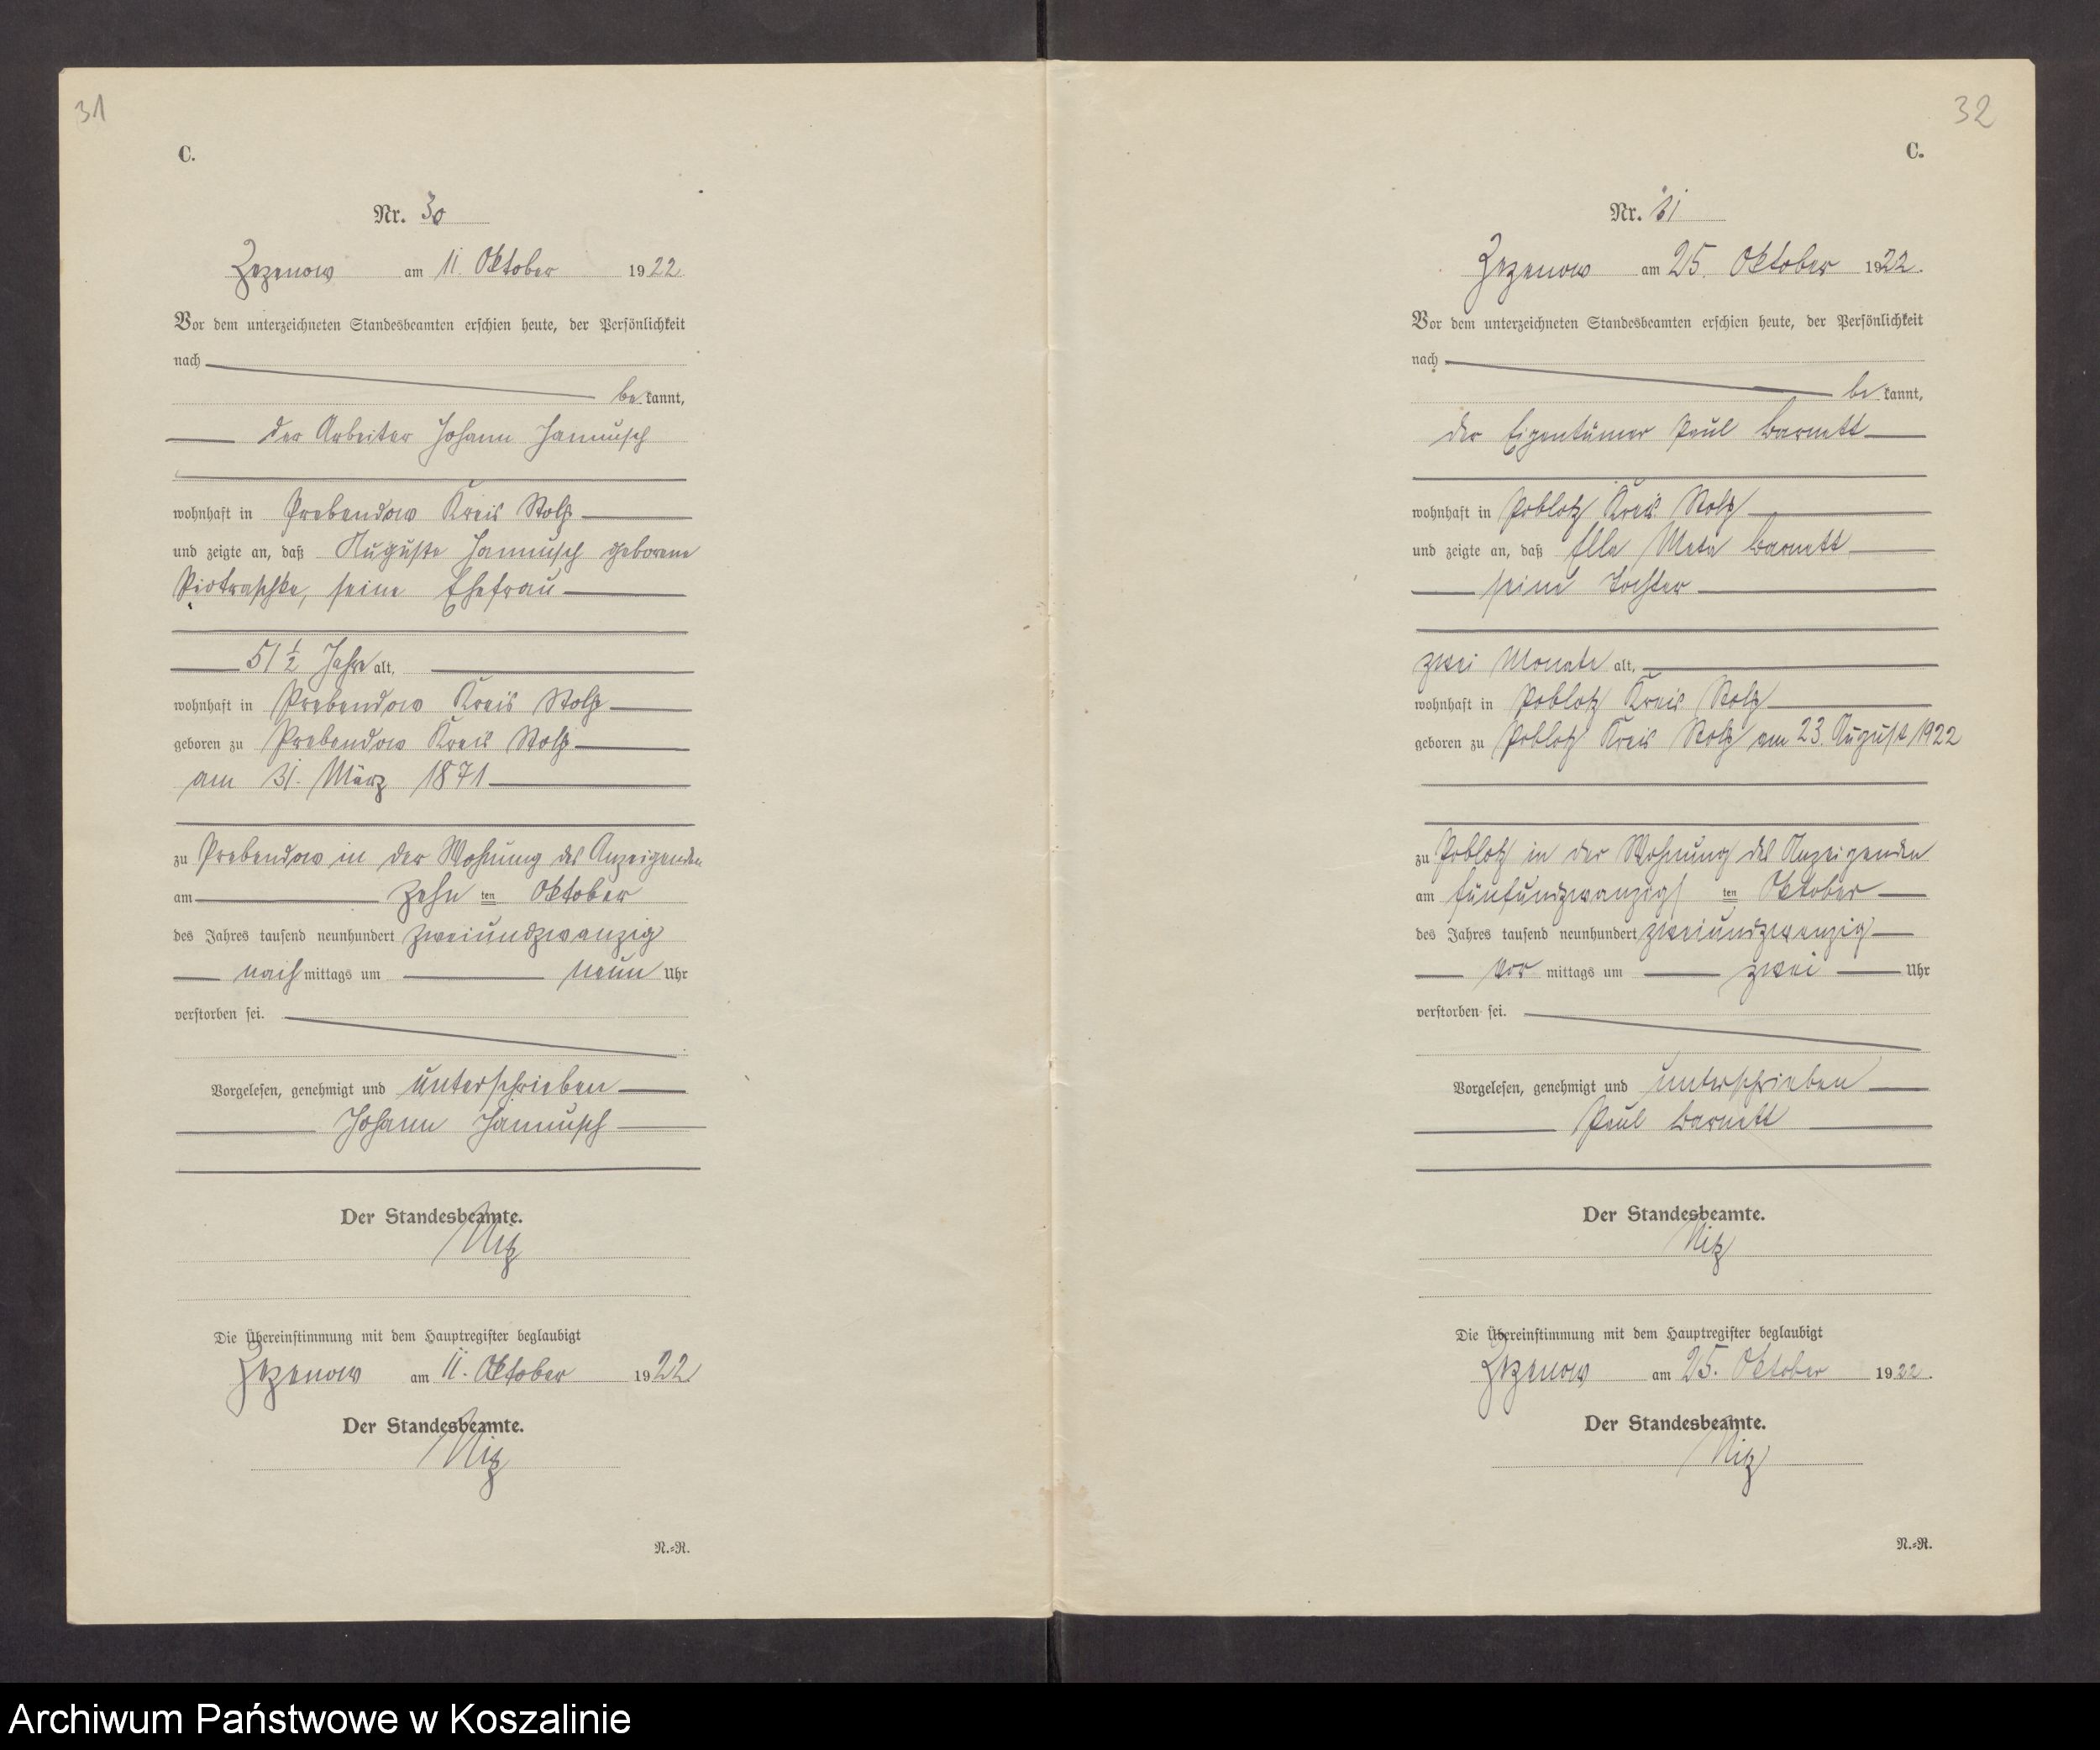 31
C.
Nr. 30
Zezenow am 11. Oktober 1922
Vor dem unterzeichneten Standesbeamten erschien heute, der Persönlichkeit
nach
bekannt,
der Arbeiter Johann Jannusch
wohnhaft in Prebendow Kreis Stolp
und zeigte an, daß Auguste Jannusch geborene
Piotraschke, seine Ehefrau
51 1/2 Jahre alt,
wohnhaft in Prebendow Kreis Stolp
geboren zu Prebendow Kreis Stolp
am 31. März 1871
zu Prebendow in der Wohnung des Anzeigenden
am zehn ten Oktober
des Jahres tausend neunhundert zweiundzwanzig
nach mittags um neun Uhr
verstorben sei.
Vorgelesen, genehmigt und unterschrieben
Johann Jannusch
Der Standesbeamte.
Nitz
Die Übereinstimmung mit dem Hauptregister beglaubigt
Zezenow am 11. Oktober 1922
Der Standesbeamte.
Nitz
N.=R.
32
C.
Nr. 31
Zezenow am 25. Oktober 1922.
Vor dem unterzeichneten Standesbeamten erschien heute, der Persönlichkeit
nach
bekannt,
der Eigentümer Paul Barnett
wohnhaft in Poblotz Kreis Stolp
und zeigte an, daß Ella Meta Barnett
seine Tochter
zwei Monate alt,
wohnhaft in Poblotz Kreis Stolp
geboren zu Poblotz Kreis Stolp am 23. August 1922
zu Poblotz in der Wohnung des Anzeigenden
am fünfundzwanzigs ten Oktober
des Jahres tausend neunhundert zweiundzwanzig
vor mittags um zwei Uhr
verstorben sei.
Vorgelesen, genehmigt und unterschrieben
Paul Barnett
Der Standesbeamte.
Nitz
Die Übereinstimmung mit dem Hauptregister beglaubigt
Zezenow am 25. Oktober 1922.
Der Standesbeamte.
Nitz
N.=R.
Archiwum Państwowe w Koszalinie